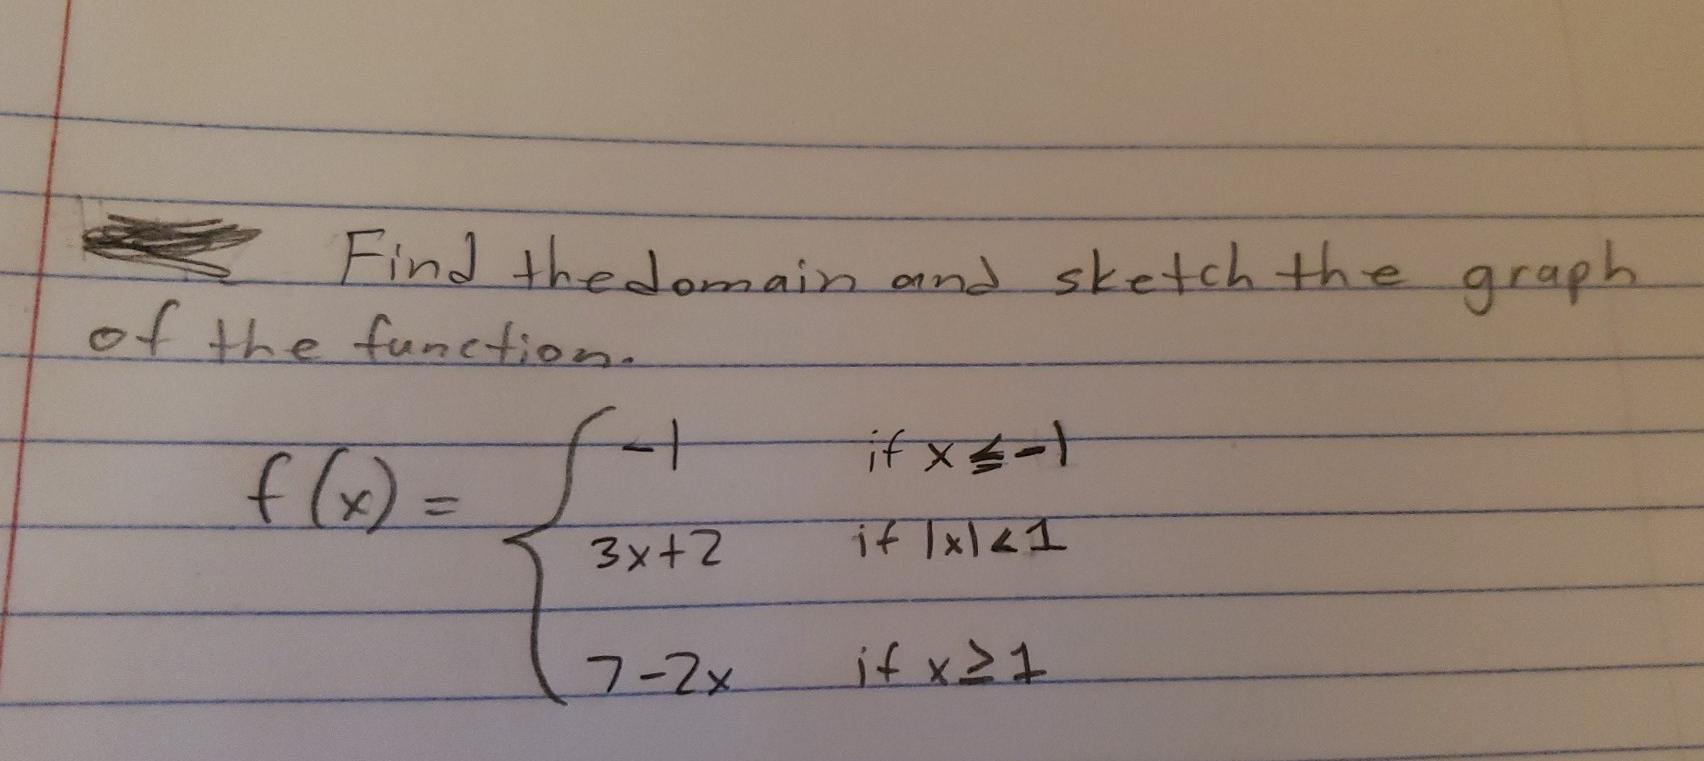 Find the domain and sketch the graph
of the function.
f(x) = { -1 if x ≤ -1
3x+2 if |x| < 1
7-2x if x ≥ 1